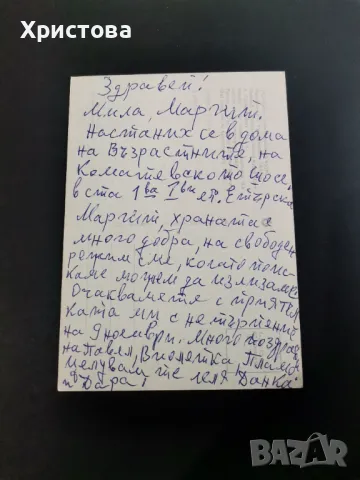 Христова
Здравей!
Мила, Маргит.
Настаних се в дома
на Възрастните, на
Коматевското шосе,
в ста 1ва 1ви ет.
Маргит, храната е
много добра, на свободен
режим сме, когато поис
каме можем да излизаме
Очакваме те с прият
ката ми с нетърпение
на 9 ноември. Много поздрави
на Павел, Виолетка, Пламен
и Дара!
Целувам те леля Данка.
BAZAR